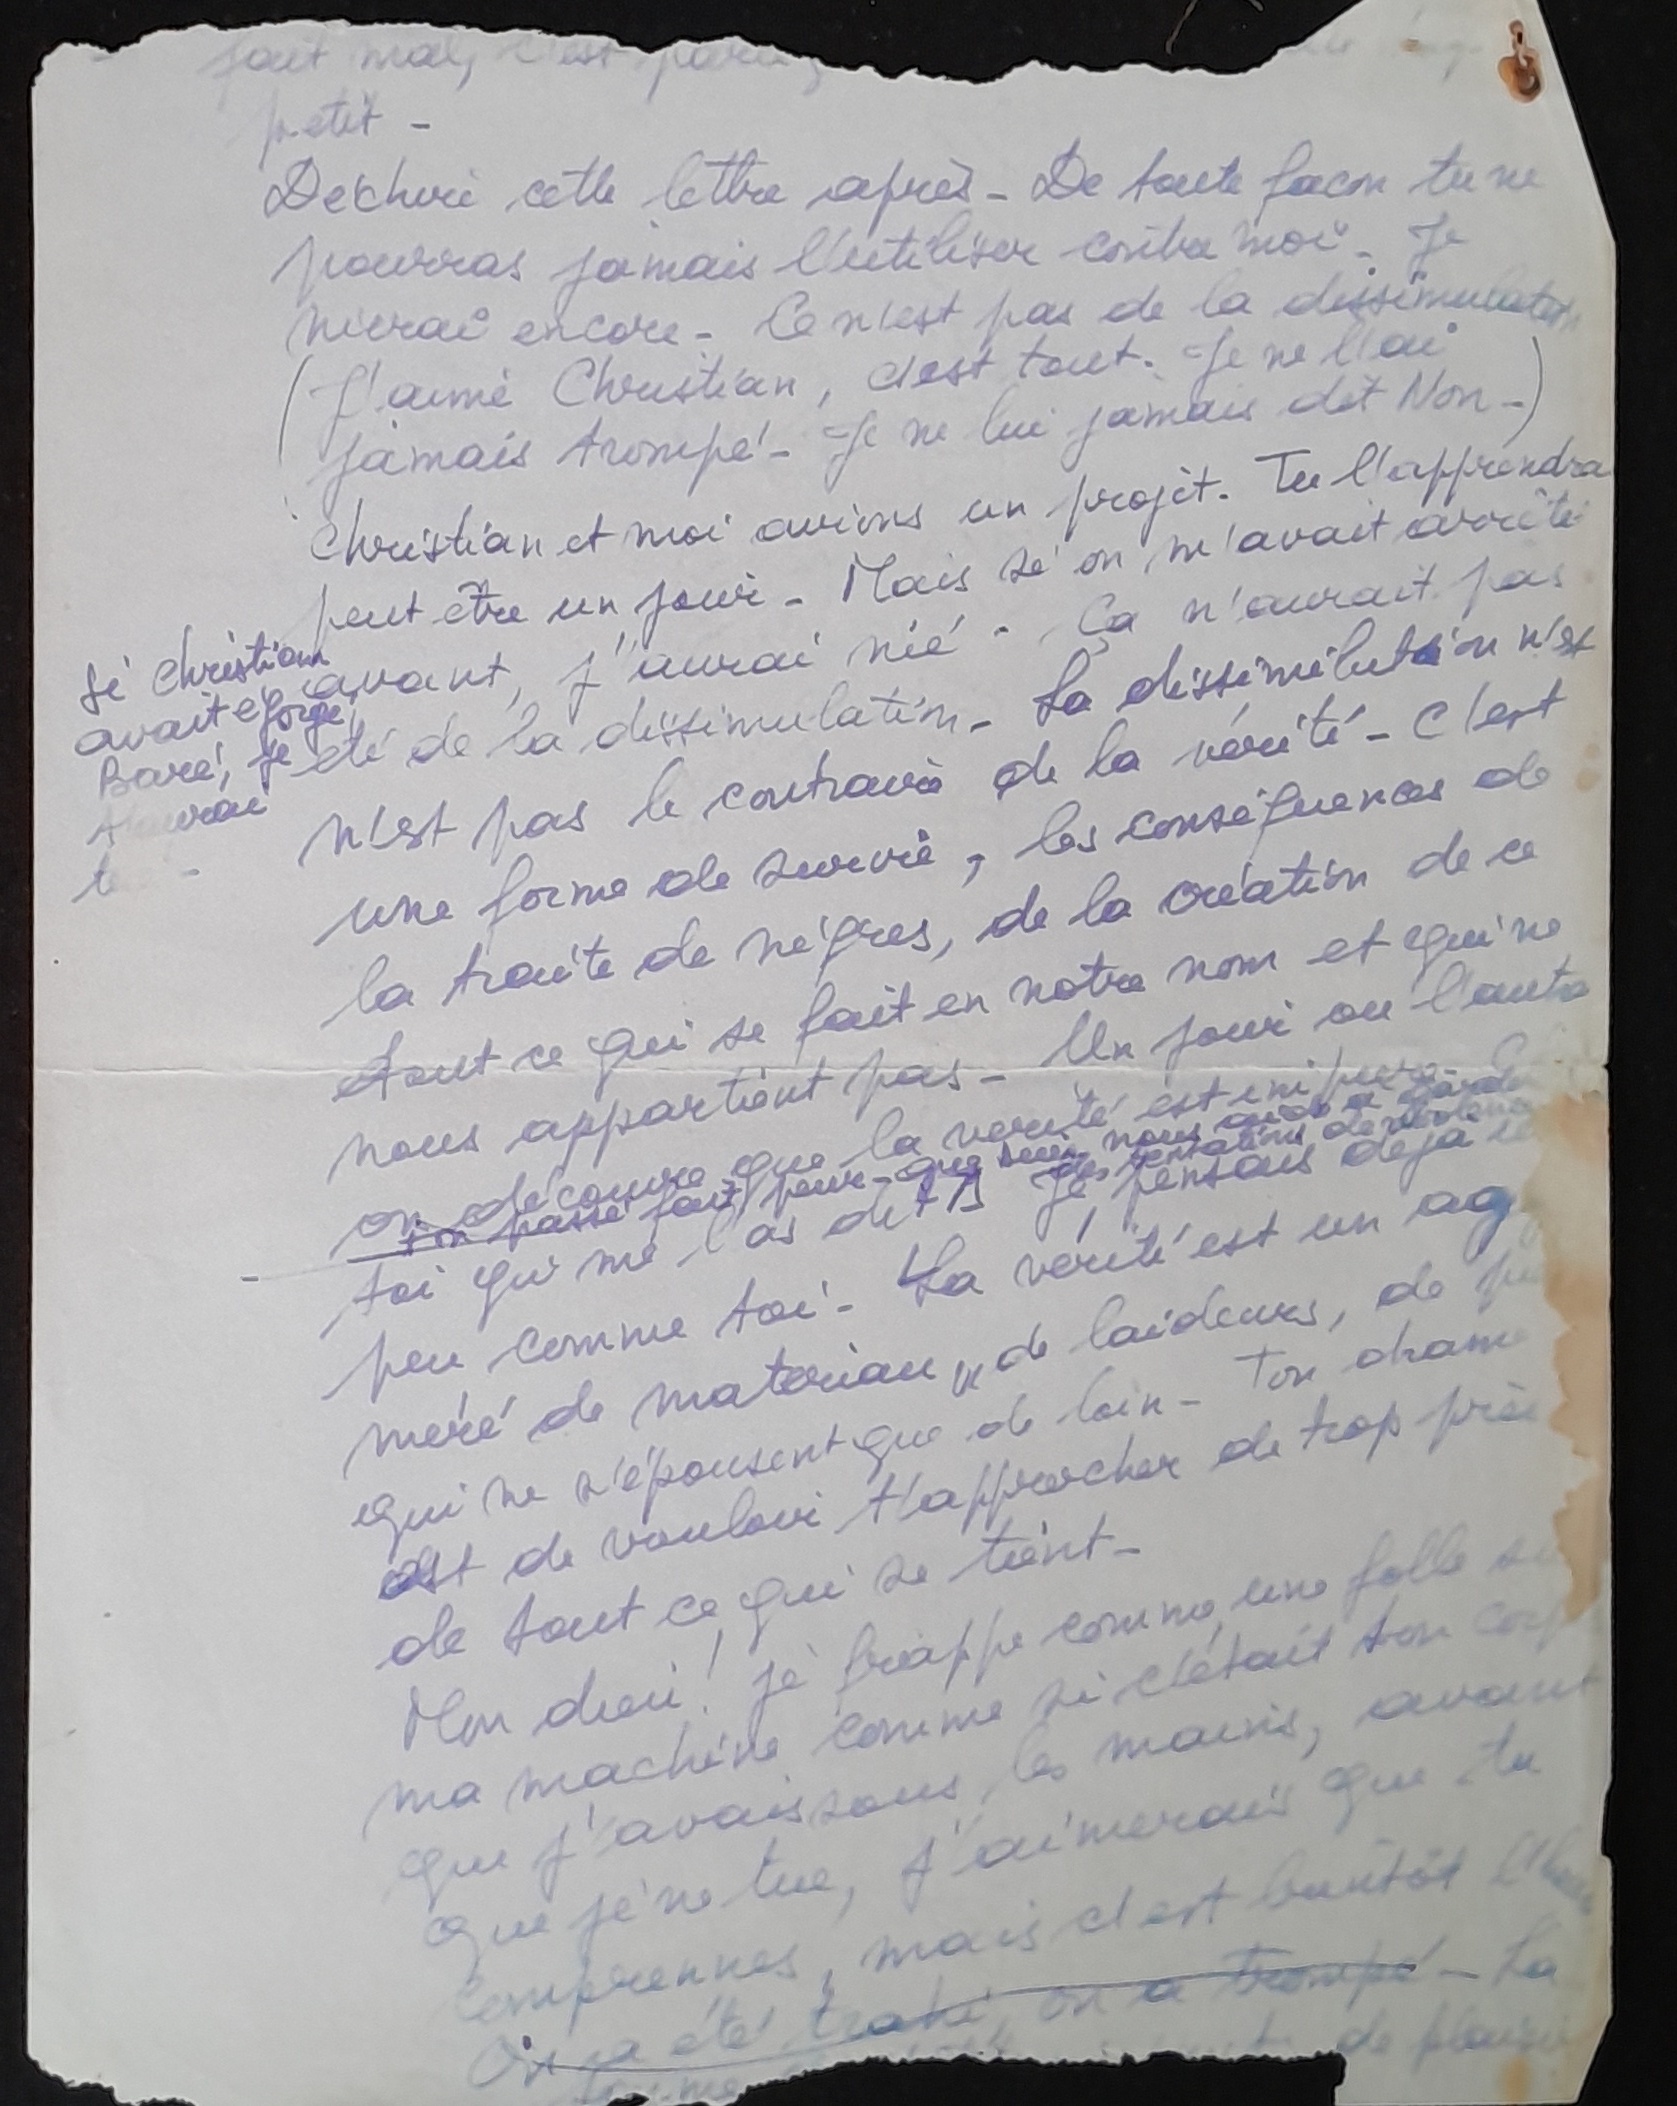 fait mal, c'est
petit -
Dechire cette lettre après - De toute facon tu ne
pourras jamais l'utiliser contre moi - Je
nierai encore - Ce n'est pas de la dissimulation
(J'aime Christian, c'est tout. Je ne l'ai
jamais trompé - Je ne lui jamais dit Non -)
Christian et moi avions un projet. Tu l'apprendra
peut être un jour - Mais si on m'avait arrêté
avant, j'aurai nié - Ça n'aurait pas
été de la dissimulation - La dissimulation n'est
n'est pas le contraire de la vérité - C'est
une forme de survie, les conséquences de
la traite de nègres, de la création de ce
tout ce qui se fait en notre nom et qui ne
nous appartient pas - Un jour ou l'autre
on découvre que la verité est impure
Ton passé fait peur - que nous
toi qui me l'as dit Je pensais déjà
peu comme toi - La vérité est un ag
méré de materiau, de laideurs, de
qui ne s'épousent que de loin - Ton drame
est de vouloir t'approcher de trop près
de tout ce qui se tient -
Mon dieu ! je frappe comme une folle
ma machine comme si c'était ton corp
que j'avais sous les mains, avant
que je ne tue, j'aimerais que tu
comprennes, mais c'est bientôt
On a été trahi, on a trompé - La
de
Si Christian
avait égorgé
Baré, je
t'aurai